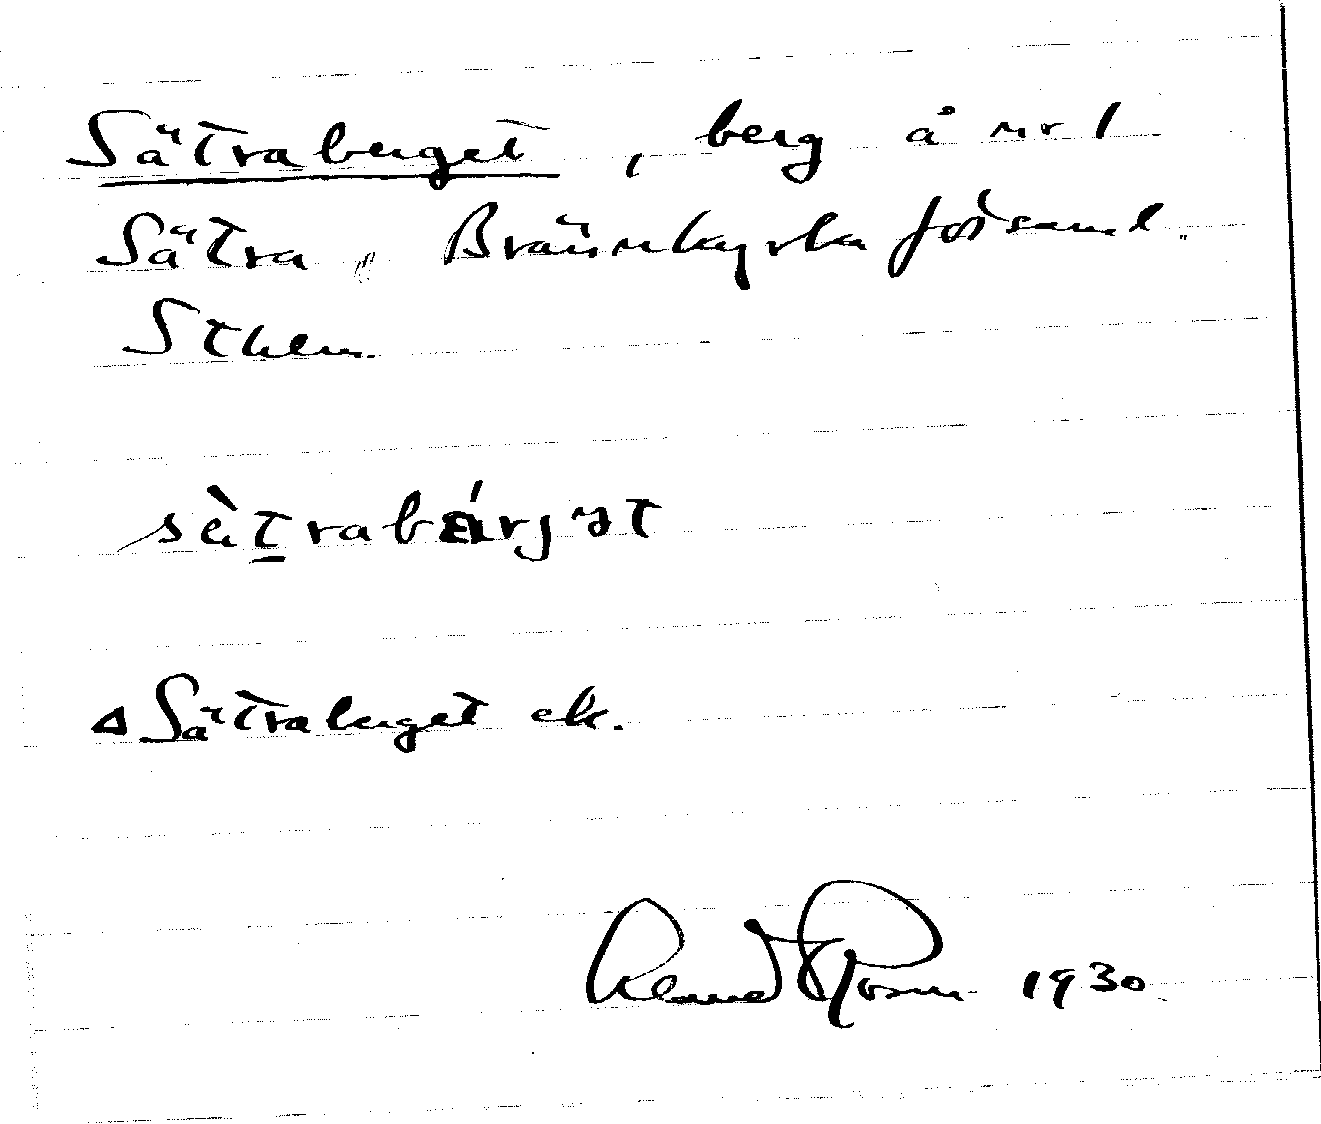 Sätraberget, berg å nr 1
Sätra, Brännkyrka församl.
Sthlm.
sätrabärjət
Sätraberget ek.
1930